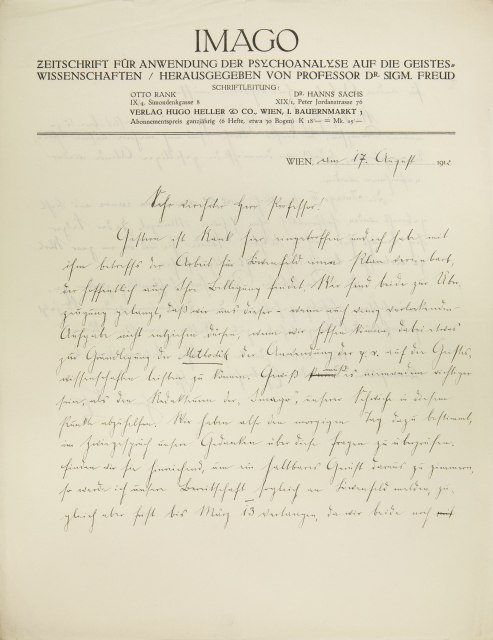 IMAGO
ZEITSCHRIFT FÜR ANWENDUNG DER PSYCHOANALYSE AUF DIE GEISTES-
WISSENSCHAFTEN / HERAUSGEGEBEN VON PROFESSOR DR. SIGM. FREUD
SCHRIFTLEITUNG:
OTTO RANK DR. HANNS SACHS
IX/4, Simondenkgasse 8 XIX/1, Peter Jordanstrasse 76
VERLAG HUGO HELLER & CO., WIEN, I. BAUERNMARKT 3
Abonnementspreis ganzjährig (6 Hefte, etwa 30 Bogen) K 18·— = Mk. 15·—
WIEN, am 17. August 1912
Sehr verehrter Herr Professor!
Gestern ist Rank hier eingetroffen und ich habe mit
ihm betreffs der Arbeit für einen Plan vereinbart,
der hoffentlich auch Ihre Billigung findet. Wir sind beide zur Über
zeugung gelangt, daß wir uns dieser – wenn auch wenig verlockenden –
Aufgabe nicht entziehen dürfen, wenn wir hoffen können, dabei etwas
zur Grundlegung der Methodik der Anwendung der p. a. auf die Geistes
wissenschaften leisten zu können. Gewiß muß es niemandem wichtiger
sein, als den Redakteuren der „Imago“, unserer Schwäche in diesem
Punkte abzuhelfen. Wir haben also den morgigen Tag dazu bestimmt,
im Zwiegespräch unsere Gedanken über diese Fragen zu überprüfen.
finden wir sie hinreichend, um ein haltbares Gerüst daraus zu zimmern,
so werde ich unsere Bereitschaft sogleich an melden, zu-
gleich aber Frist bis März 13 verlangen, da wir beide noch